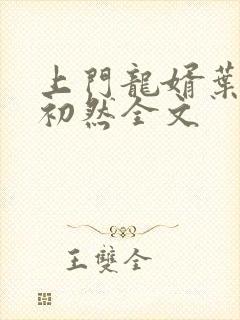 上門龍婿葉
初然全文
王雙全